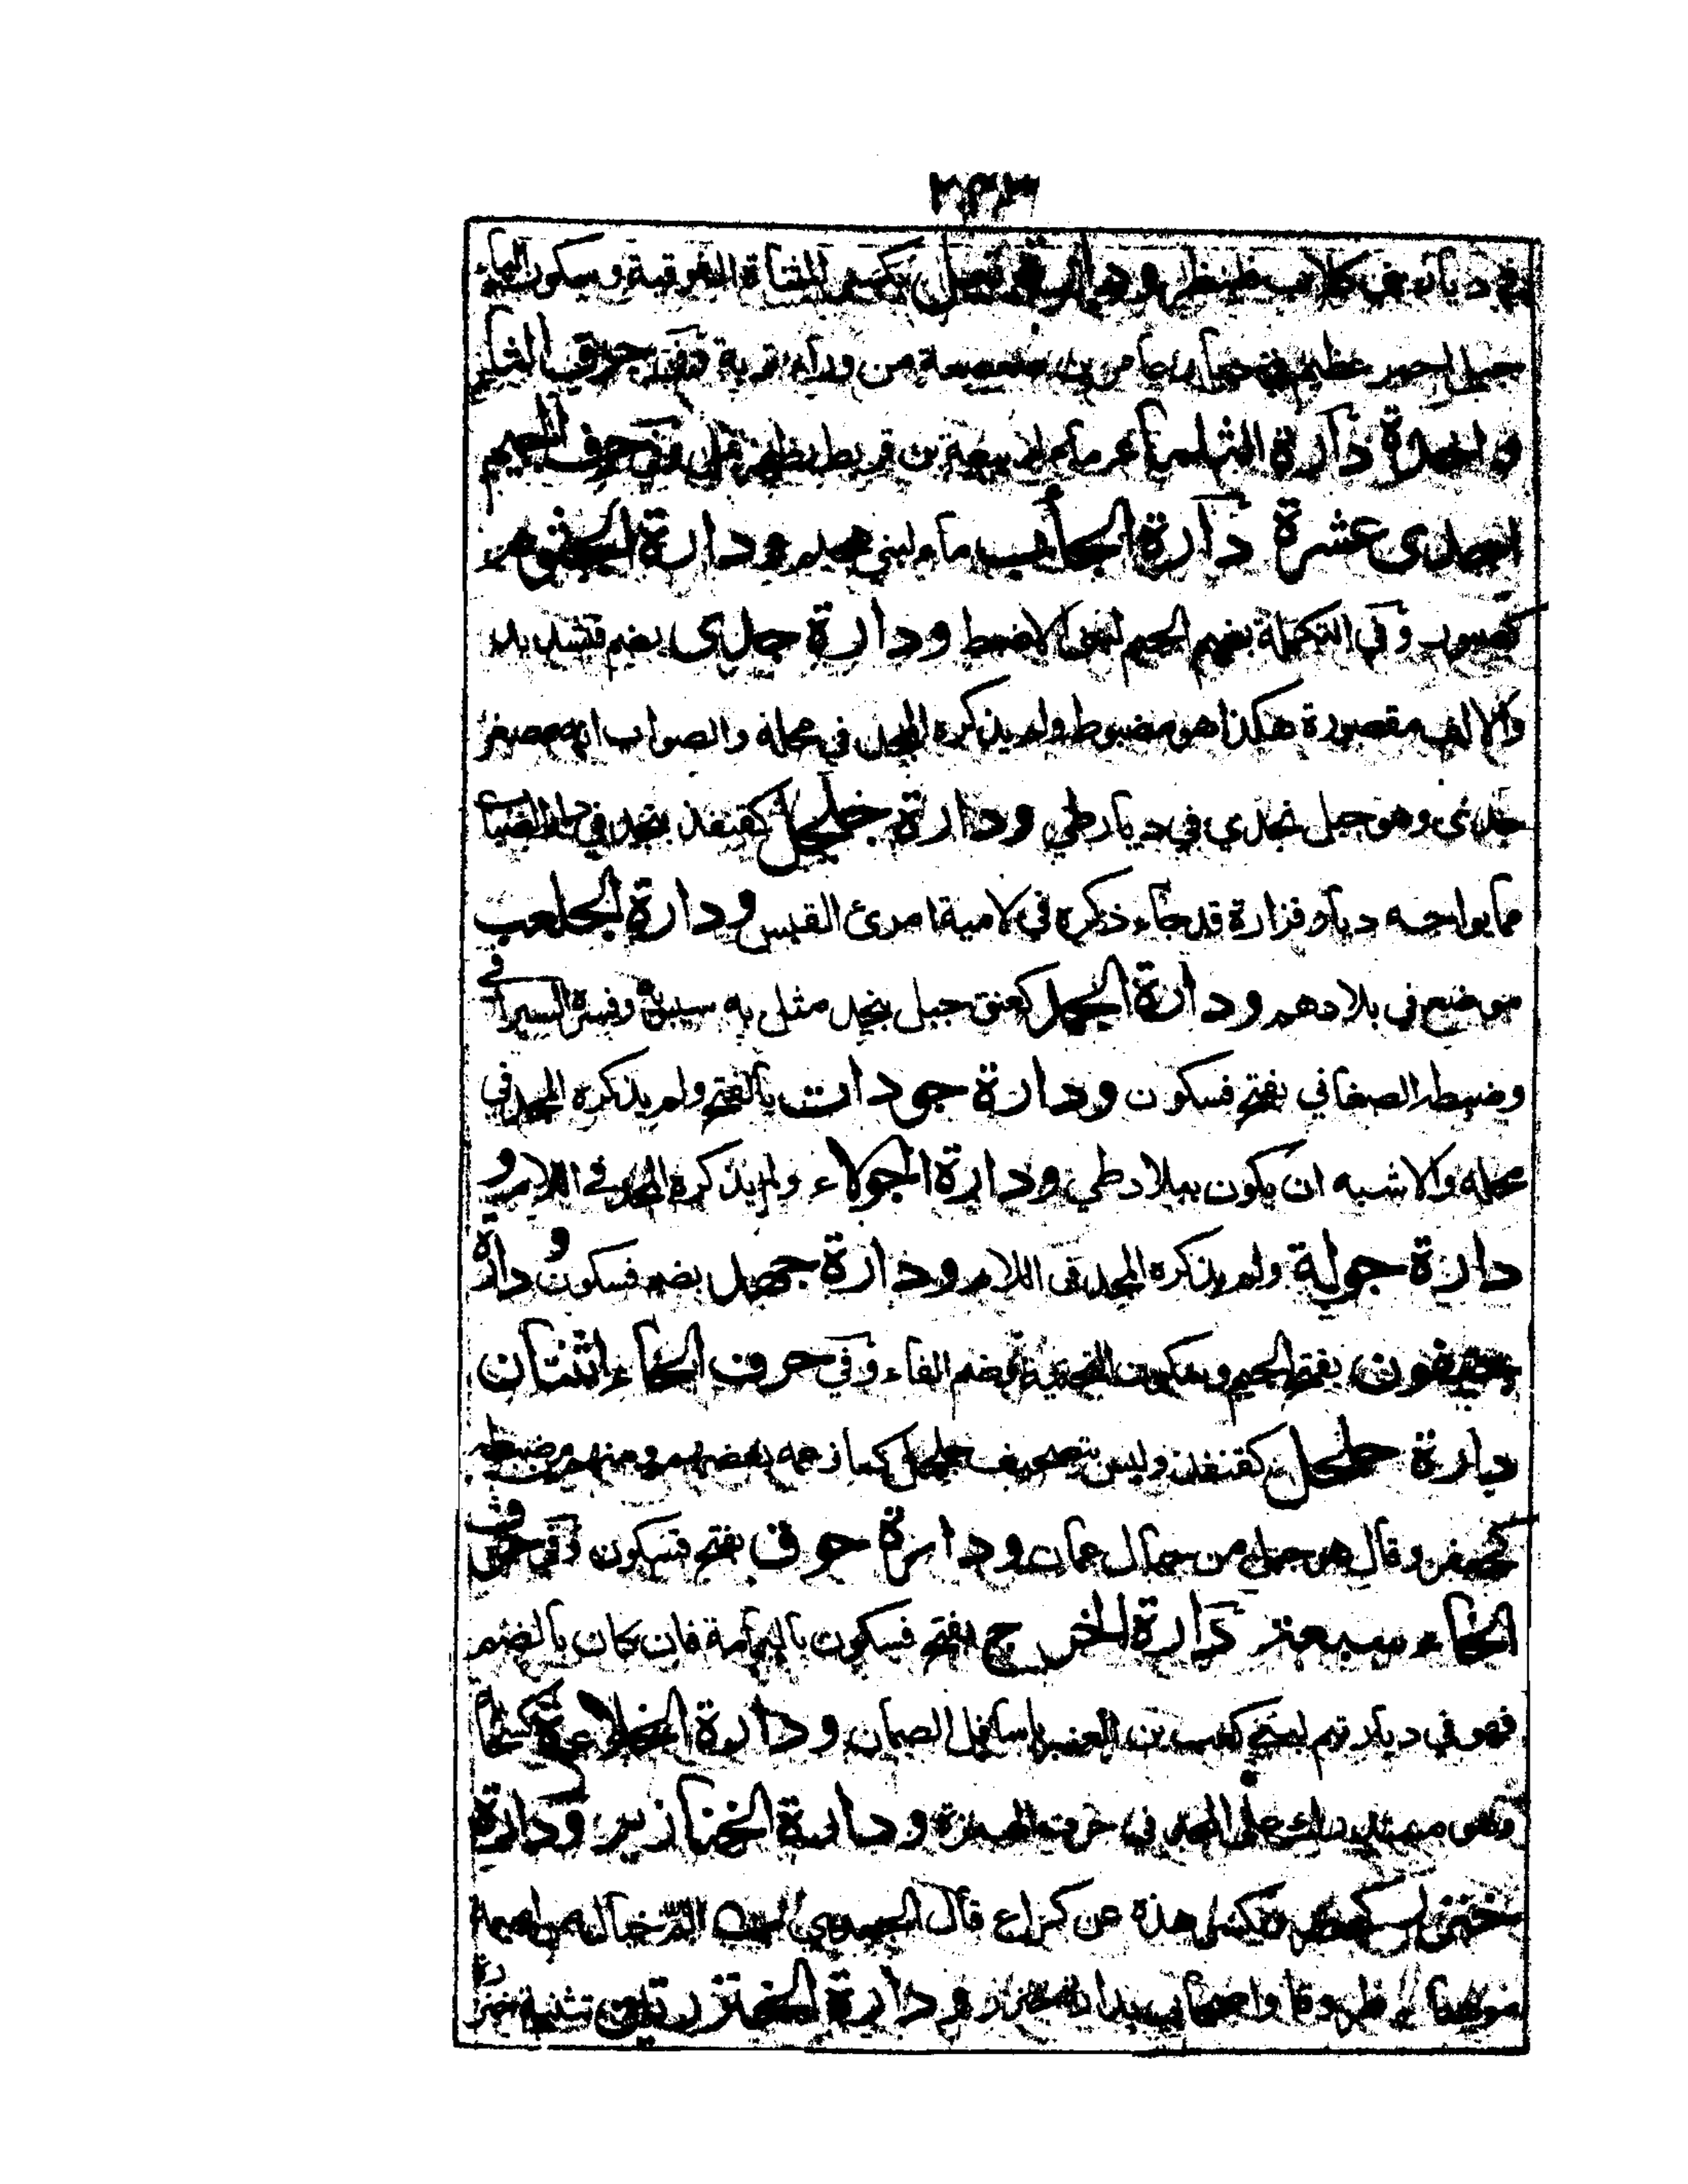 في ديار بني كلاب ودارة بكسر المثناة الفوقية وسكون الياء
جبل احمر عظيم في ديار عامر بن صعصعة من وراء تربة وفي حرف الثاء
واحدة دارة الثلماء ماء لربيعة بن قريط وفي حرف الجيم
احدى عشرة دارة الجأب ماء لبني هجيم ودارة الجثوم
كصبور وفي التكملة بضم الجيم ودارة جدى بضم فتشديد
والالف مقصورة هكذا هو مضبوط ولم يذكره المجد في محله والصواب انه مصغر
جدي وهو جبل نجدي في ديار طي ودارة جلجل كقنفذ بنجد في دار الضباب
مما يواجه ديار فزارة قد جاء ذكره في لامية امرئ القيس ودارة الجلعب
موضع في بلادهم ودارة الجمد كعنق جبل بنجد مثل به سيبويه وفسره السيرافي
وضبطه الصغاني بفتح فسكون ودارة جودات بالفتح ولم يذكره المجد في
محله والاشبه ان يكون ببلاد طي ودارة الجولاء ولم يذكره المجد في اللام و
دارة جولة ولم يذكره المجد في اللام ودارة جهد بضم فسكون ودارة
جيفون بفتح الجيم وسكون التحتية وضم الفاء وفي حرف الحاء اثنتان
دارة حلحل كقنفذ وليس بتصحيف جلجل كما زعمه بعضهم ومنهم من ضبطه
كجعفر وقال هو جبل من جبال عمان ودارة حوق بفتح فسكون وفي حرف
الخاء سبعة دارة الخرج بفتح فسكون باليمامة فان كان بالضم
فهو في ديار تيم لبني كعب بن العنبر باسافل الصمان ودارة الخلاءة
وهو مستدرك على المجد في حرف الهمزة ودارة الخنازير ودارة
خنزر كجعفر وتكسر هذه عن كراع قال الجعدي الم خيال من اميمة
موهنا طروقا واصحابي بدارة خنزر ودارة الخنزرتين تثنية خنزرة